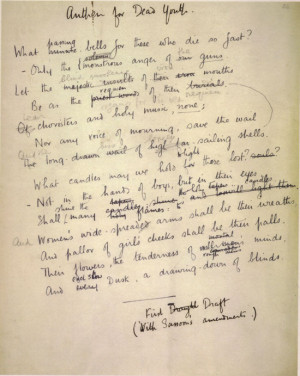 Anthem for Dead Youth.
What passing bells for these who die so fast?
- Only the monstrous anger of guns
Let the majestic insults of their mouths
Be as the requiem of their burials.
Of choristers and holy music, none;
Nor any voice of mourning, save the wail
The long-drawn wail of high far-sailing shells.
What candles may we hold for these lost?
- Not in the hands of boys, but in their eyes
Shall many candles
And Women's wide-spreaded arms shall be their wreaths,
And pallor of girls' cheeks shall be their palls.
Their flowers, the tenderness of minds,
And every Dusk, a drawing-down of blinds.
First Draft
(With Sassoon's amendments)